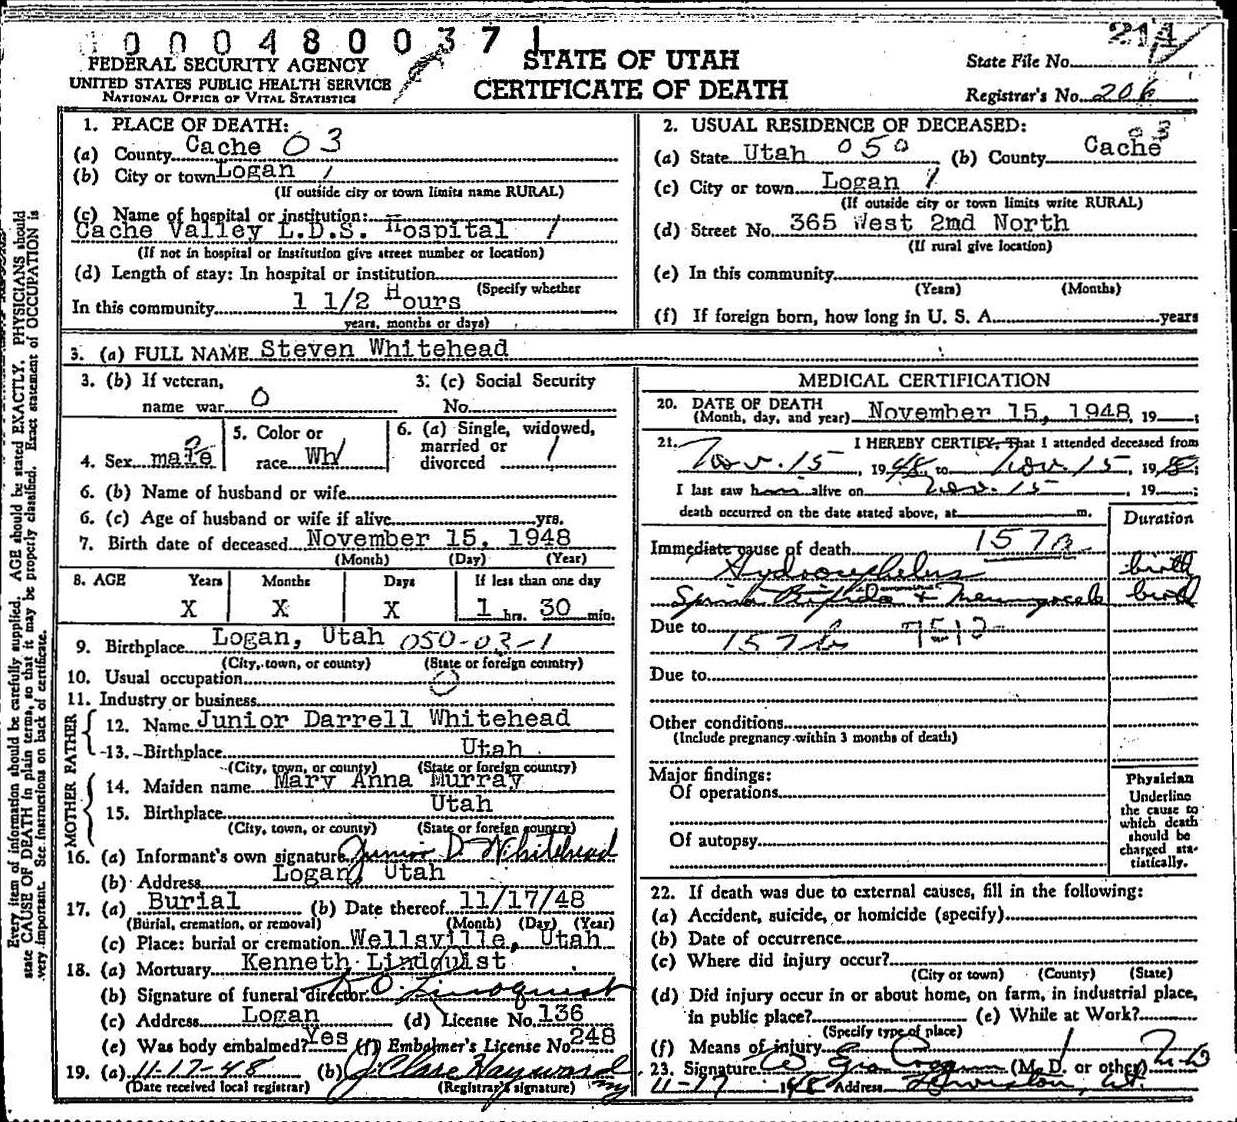 0 0 0 4 8 0 0 3 7 1
214
FEDERAL SECURITY AGENCY
UNITED STATES PUBLIC HEALTH SERVICE
NATIONAL OFFICE OF VITAL STATISTICS
STATE OF UTAH
CERTIFICATE OF DEATH
State File No.
Registrar's No. 206
1. PLACE OF DEATH:
(a) County Cache 03
(b) City or town Logan 1
(If outside city or town limits name RURAL)
(c) Name of hospital or institution:
Cache Valley L.D.S. Hospital 1
(If not in hospital or institution give street number or location)
(d) Length of stay: In hospital or institution
(Specify whether
In this community 1 1/2 Hours
years, months or days)
2. USUAL RESIDENCE OF DECEASED:
(a) State Utah 050 (b) County Cache 03
(c) City or town Logan 1
(If outside city or town limits write RURAL)
(d) Street No. 365 West 2nd North
(If rural give location)
(e) In this community
(Years) (Months)
(f) If foreign born, how long in U. S. A. years
3. (a) FULL NAME Steven Whitehead
3. (b) If veteran,
name war 0
3. (c) Social Security
No.
4. Sex male
5. Color or
race Wh
6. (a) Single, widowed,
married or
divorced 1
6. (b) Name of husband or wife
6. (c) Age of husband or wife if alive yrs.
7. Birth date of deceased November 15, 1948
(Month) (Day) (Year)
8. AGE Years Months Days If less than one day
X X X 1 hrs. 30 min.
9. Birthplace Logan, Utah 050-03-1
(City, town, or county) (State or foreign country)
10. Usual occupation 0
11. Industry or business
FATHER
12. Name Junior Darrell Whitehead
13. Birthplace Utah
(City, town, or county) (State or foreign country)
MOTHER
14. Maiden name Mary Anna Murray
15. Birthplace Utah
(City, town, or county) (State or foreign country)
16. (a) Informant's own signature Junior D Whitehead
(b) Address Logan, Utah
17. (a) Burial (b) Date thereof 11/17/48
(Burial, cremation, or removal) (Month) (Day) (Year)
(c) Place: burial or cremation Wellsville, Utah
18. (a) Mortuary Kenneth Lindquist
(b) Signature of funeral director K O Lindquist
(c) Address Logan (d) License No. 136
(e) Was body embalmed? Yes (f) Embalmer's License No. 248
19. (a) 11-17-48 (b) J Clare Hayward
(Date received local registrar) (Registrar's signature)
MEDICAL CERTIFICATION
20. DATE OF DEATH
(Month, day, and year) November 15, 1948, 19
21. I HEREBY CERTIFY, That I attended deceased from
Nov. 15, 1948 to Nov. 15, 1948;
I last saw him alive on Nov. 15, 19;
death occurred on the date stated above, at m.
Duration
Immediate cause of death 157B
Hydrocephelus birth
Spina Bifida + Meningocele birth
Due to
157b
Due to
Other conditions
(Include pregnancy within 3 months of death)
Major findings:
Of operations
Of autopsy
Physician
Underline
the cause to
which death
should be
charged sta-
tistically.
22. If death was due to external causes, fill in the following:
(a) Accident, suicide, or homicide (specify)
(b) Date of occurrence
(c) Where did injury occur?
(City or town) (County) (State)
(d) Did injury occur in or about home, on farm, in industrial place,
in public place? (e) While at Work?
(Specify type of place)
(f) Means of injury
23. Signature (M. D. or other) M D
11-17 1948 Address Lewiston, Ut.
Every item of information should be carefully supplied. AGE should be stated EXACTLY. PHYSICIANS should
state CAUSE OF DEATH in plain terms, so that it may be properly classified. Exact statement of OCCUPATION is
very important. See instructions on back of certificate.